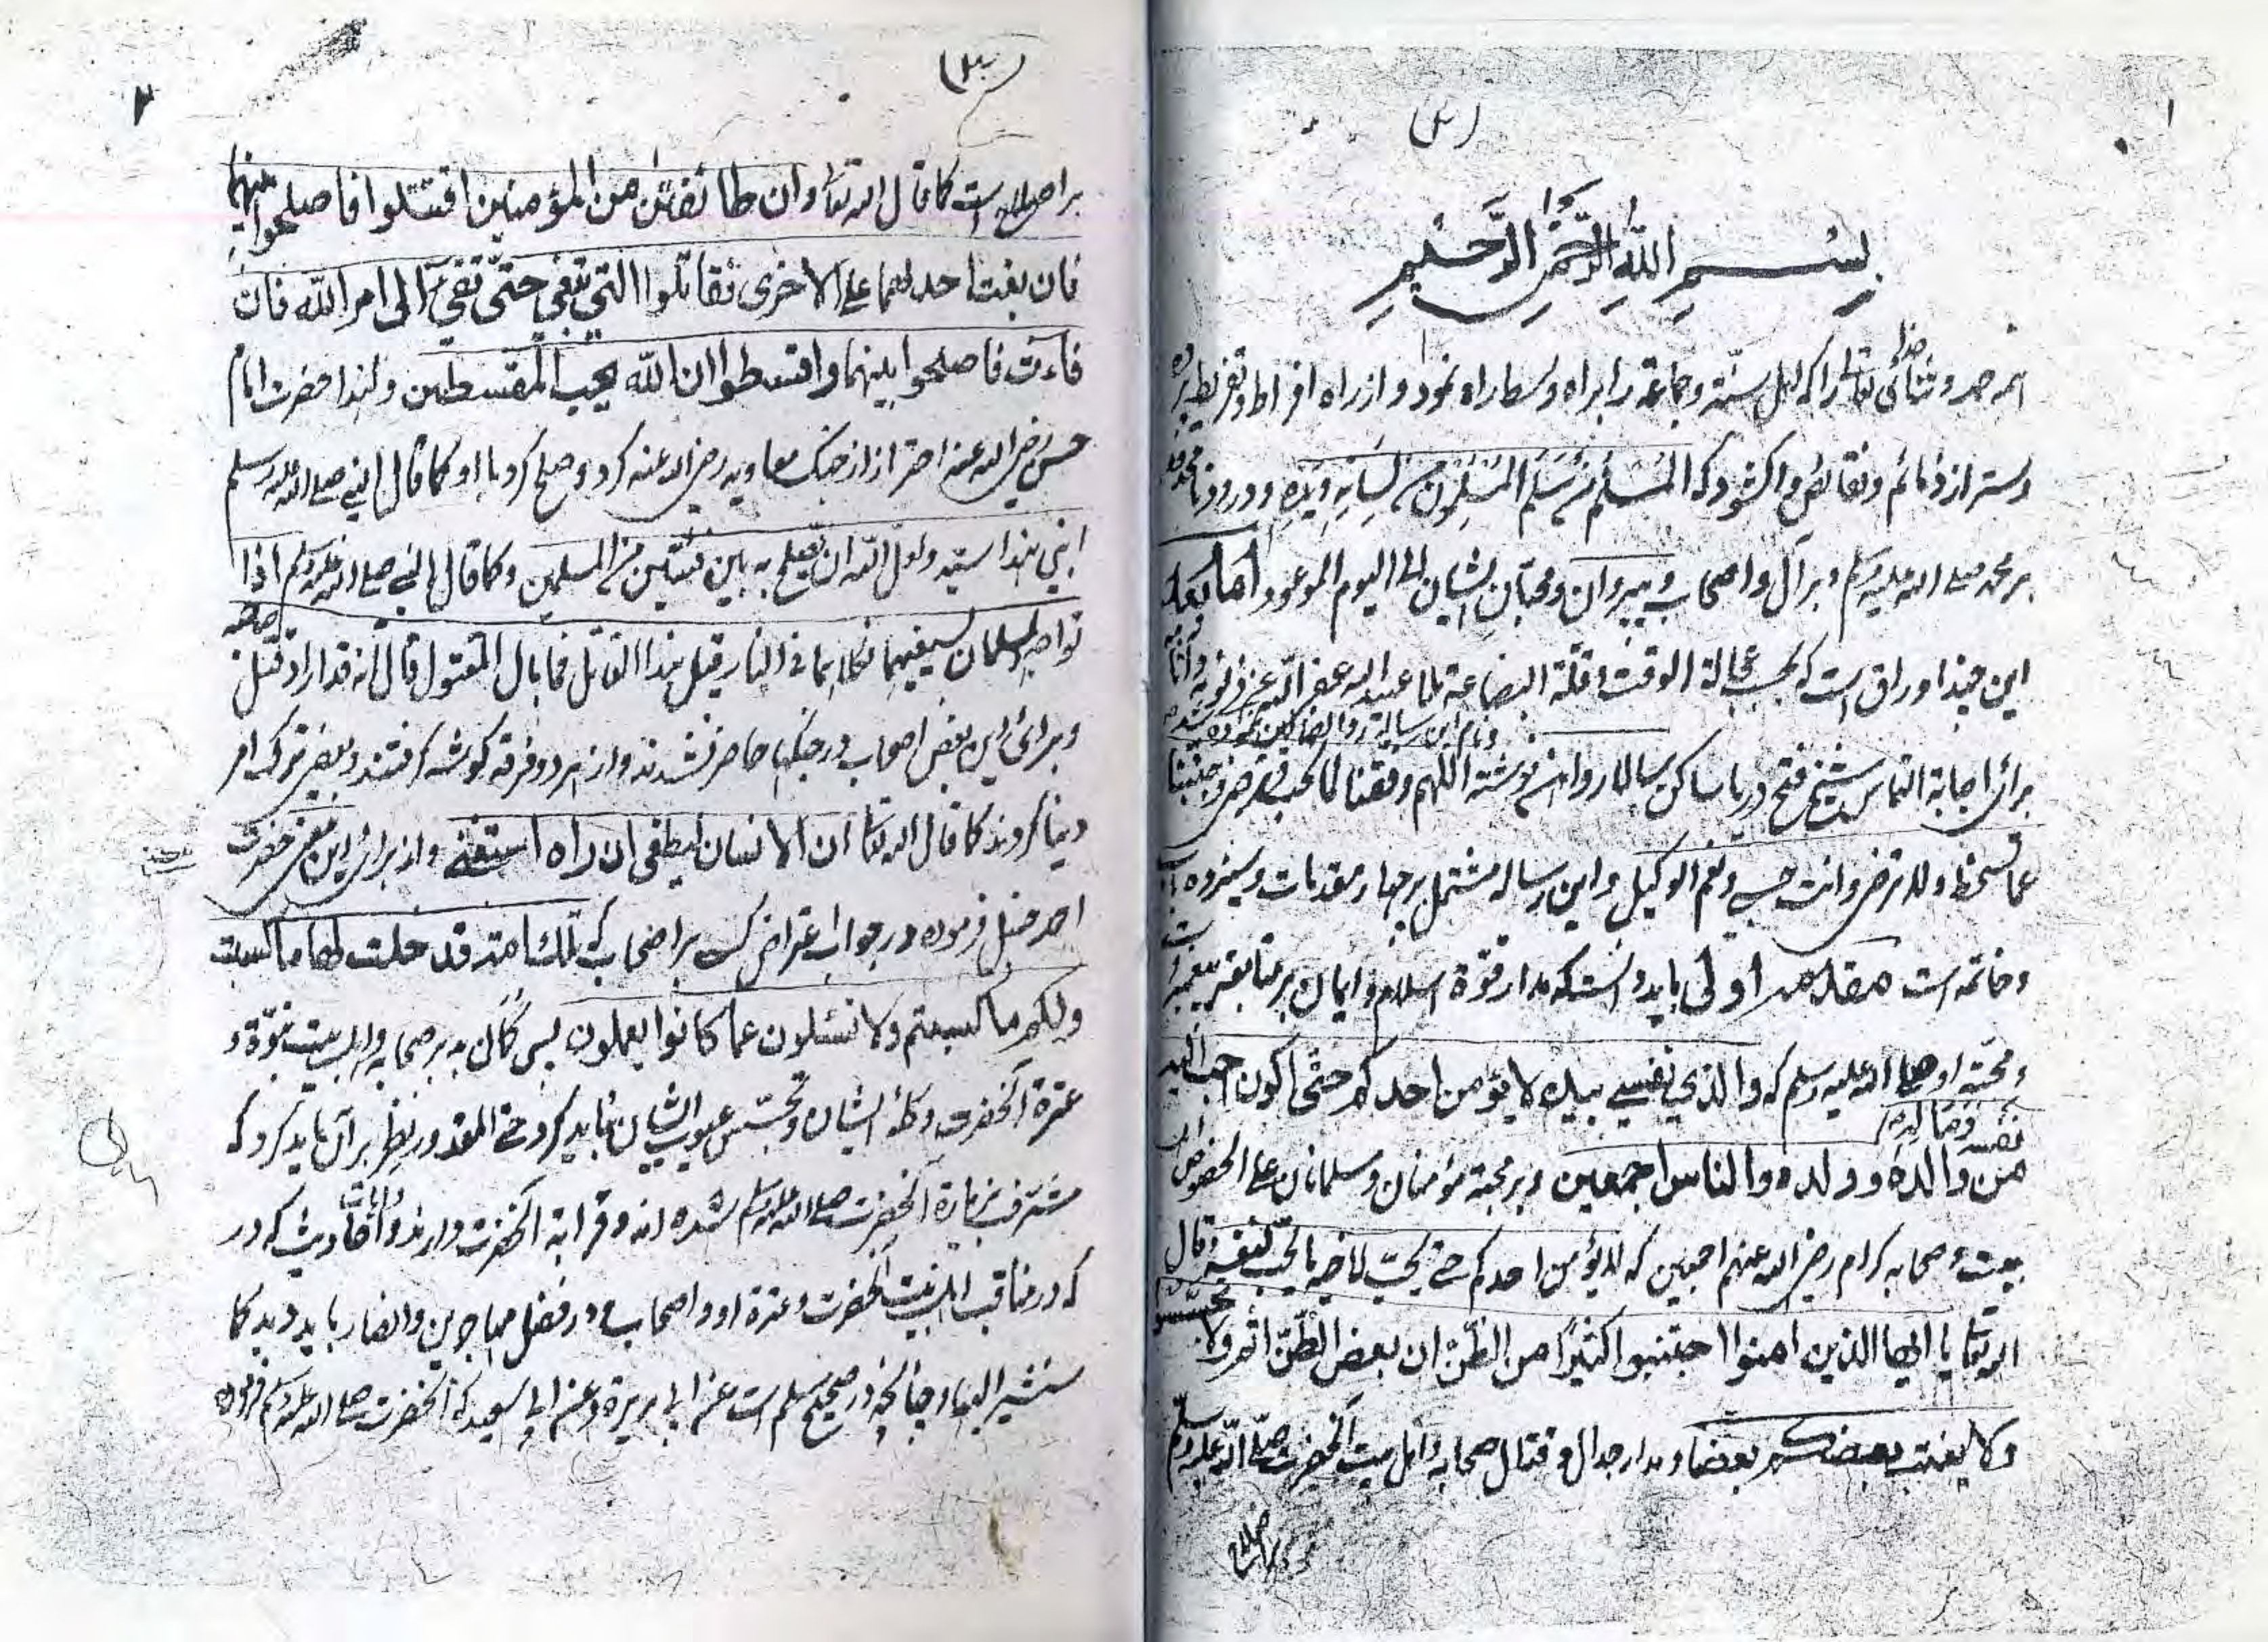 ۱
بِسْمِ اللهِ الرَّحْمٰنِ الرَّحِيمِ
حمد و ثنائی خدا تعالی را که اهل سنّة و جماعة را براه وسط راه نمود و از راه افراط و تفریط
و ستر از ذمائم و نقائص واکشود که المسلم من سَلم المسلمون من لسانه ویده و درود نامحدود
بر محمد صلی الله علیه وسلم و بر آل و اصحاب و پیروان و محبّان ایشان الی الیوم الموعود اما بعد
این چند اوراق است که بحسب عجالة الوقت و قلّة البضاعة ملا عبد الله عفر الله عن ذنوبه
و نام این رسالة
برای اجابة التماس شیخ فتح دریا ساکن نوشته اللهم وفقنا لما تحب و ترضی وجنبنا
عما تسخط ولا ترضی وانت حسبی ونعم الوکیل و این رساله مشتمل بر چهار مقدمات و سیزده باب
و خاتمه است مقدمه اولی باید دانست که مدار قوّة اسلام و ایمان بر متابعت پیغمبر است
و محبّته او صلی الله علیه وسلم که والذی نفسی بیده لا یؤمن احدکم حتّی اکون احب الیه
نفسه وماله
من والده وولده والناس اجمعین و بر محبة مؤمنان و مسلمانان علی الخصوص اهل
بیت و صحابه کرام رضی الله عنهم اجمعین که لا یؤمن احدکم حتی یحبّ لاخیه ما یحبّ لنفسه وقال
الله تعا یا ایها الذین امنوا اجتنبوا کثیرًا من الظنّ ان بعض الظنّ اثم ولا تجسسوا
ولا یغتب بعضکم بعضا و مدار جدال و قتال صحابه و اهل بیت آنحضرت صلّی الله علیه وسلم
بر اصلاح
۲
بر اصلاح است کما قال الله تعا وان طائفتٰن من المؤمنین اقتتلوا فاصلحوا بینهما
فان بغت احدٰهما علی الاخری فقاتلوا التی تبغی حتّی تفیٓء الی امر الله فان
فاءت فاصلحوا بینهما واقسطوا ان الله یحب المقسطین ولهذا حضرت امام
حسن رضی الله عنه احتراز از جنک معاویه رضی الله عنه کرد و صلح کرد با او کما قال النبی صلی الله علیه وسلم
ابنی هذا سیّد ولعل الله ان یصلح به بین فئتین من المسلمین وکما قال النبی صلی الله علیه وسلم اذا
تواجه المسلمان بسیفیهما فکلاهما فی النار قیل هذا القاتل فما بال المقتول قال انه قد اراد قتل صاحبه
و برائی این بعض اصحاب در جنگها حاضر نشدند و از هر دو فرقه کوشه کرفتند و بعضی ترک امر
دنیا کردند کما قال الله تعا ان الانسان لیطغی ان راه استغنی و از برائی این معنی حضرت
احمد حنبل فرموده در جواب اعتراض کسی بر اصحاب که تلک امة قد خلت لها ما کسبت
ولکم ما کسبتم ولا تسئلون عما کانوا یعملون پس گمان بد بر صحابه و اهل بیت نبوّة و
عترة آنحضرت و کلهٔ ایشان و تجسّس عیوب ایشان نباید کرد و حتی المقدور نظر بر آن باید کرد که
مشرّف بزیارة آنحضرت صلی الله علیه وسلم شده اند و قرابة آنحضرت دارند و آیات و احادیث که در
که در مناقب اهل بیت آنحضرت و عترة او و اصحاب و در فضل مهاجرین و انصار باید دید کما
سنشیر الیها و چنانچه در صحیح مسلم است عن ابی هریرة و عن ابی سعید که آنحضرت صلی الله علیه وسلم فرموده